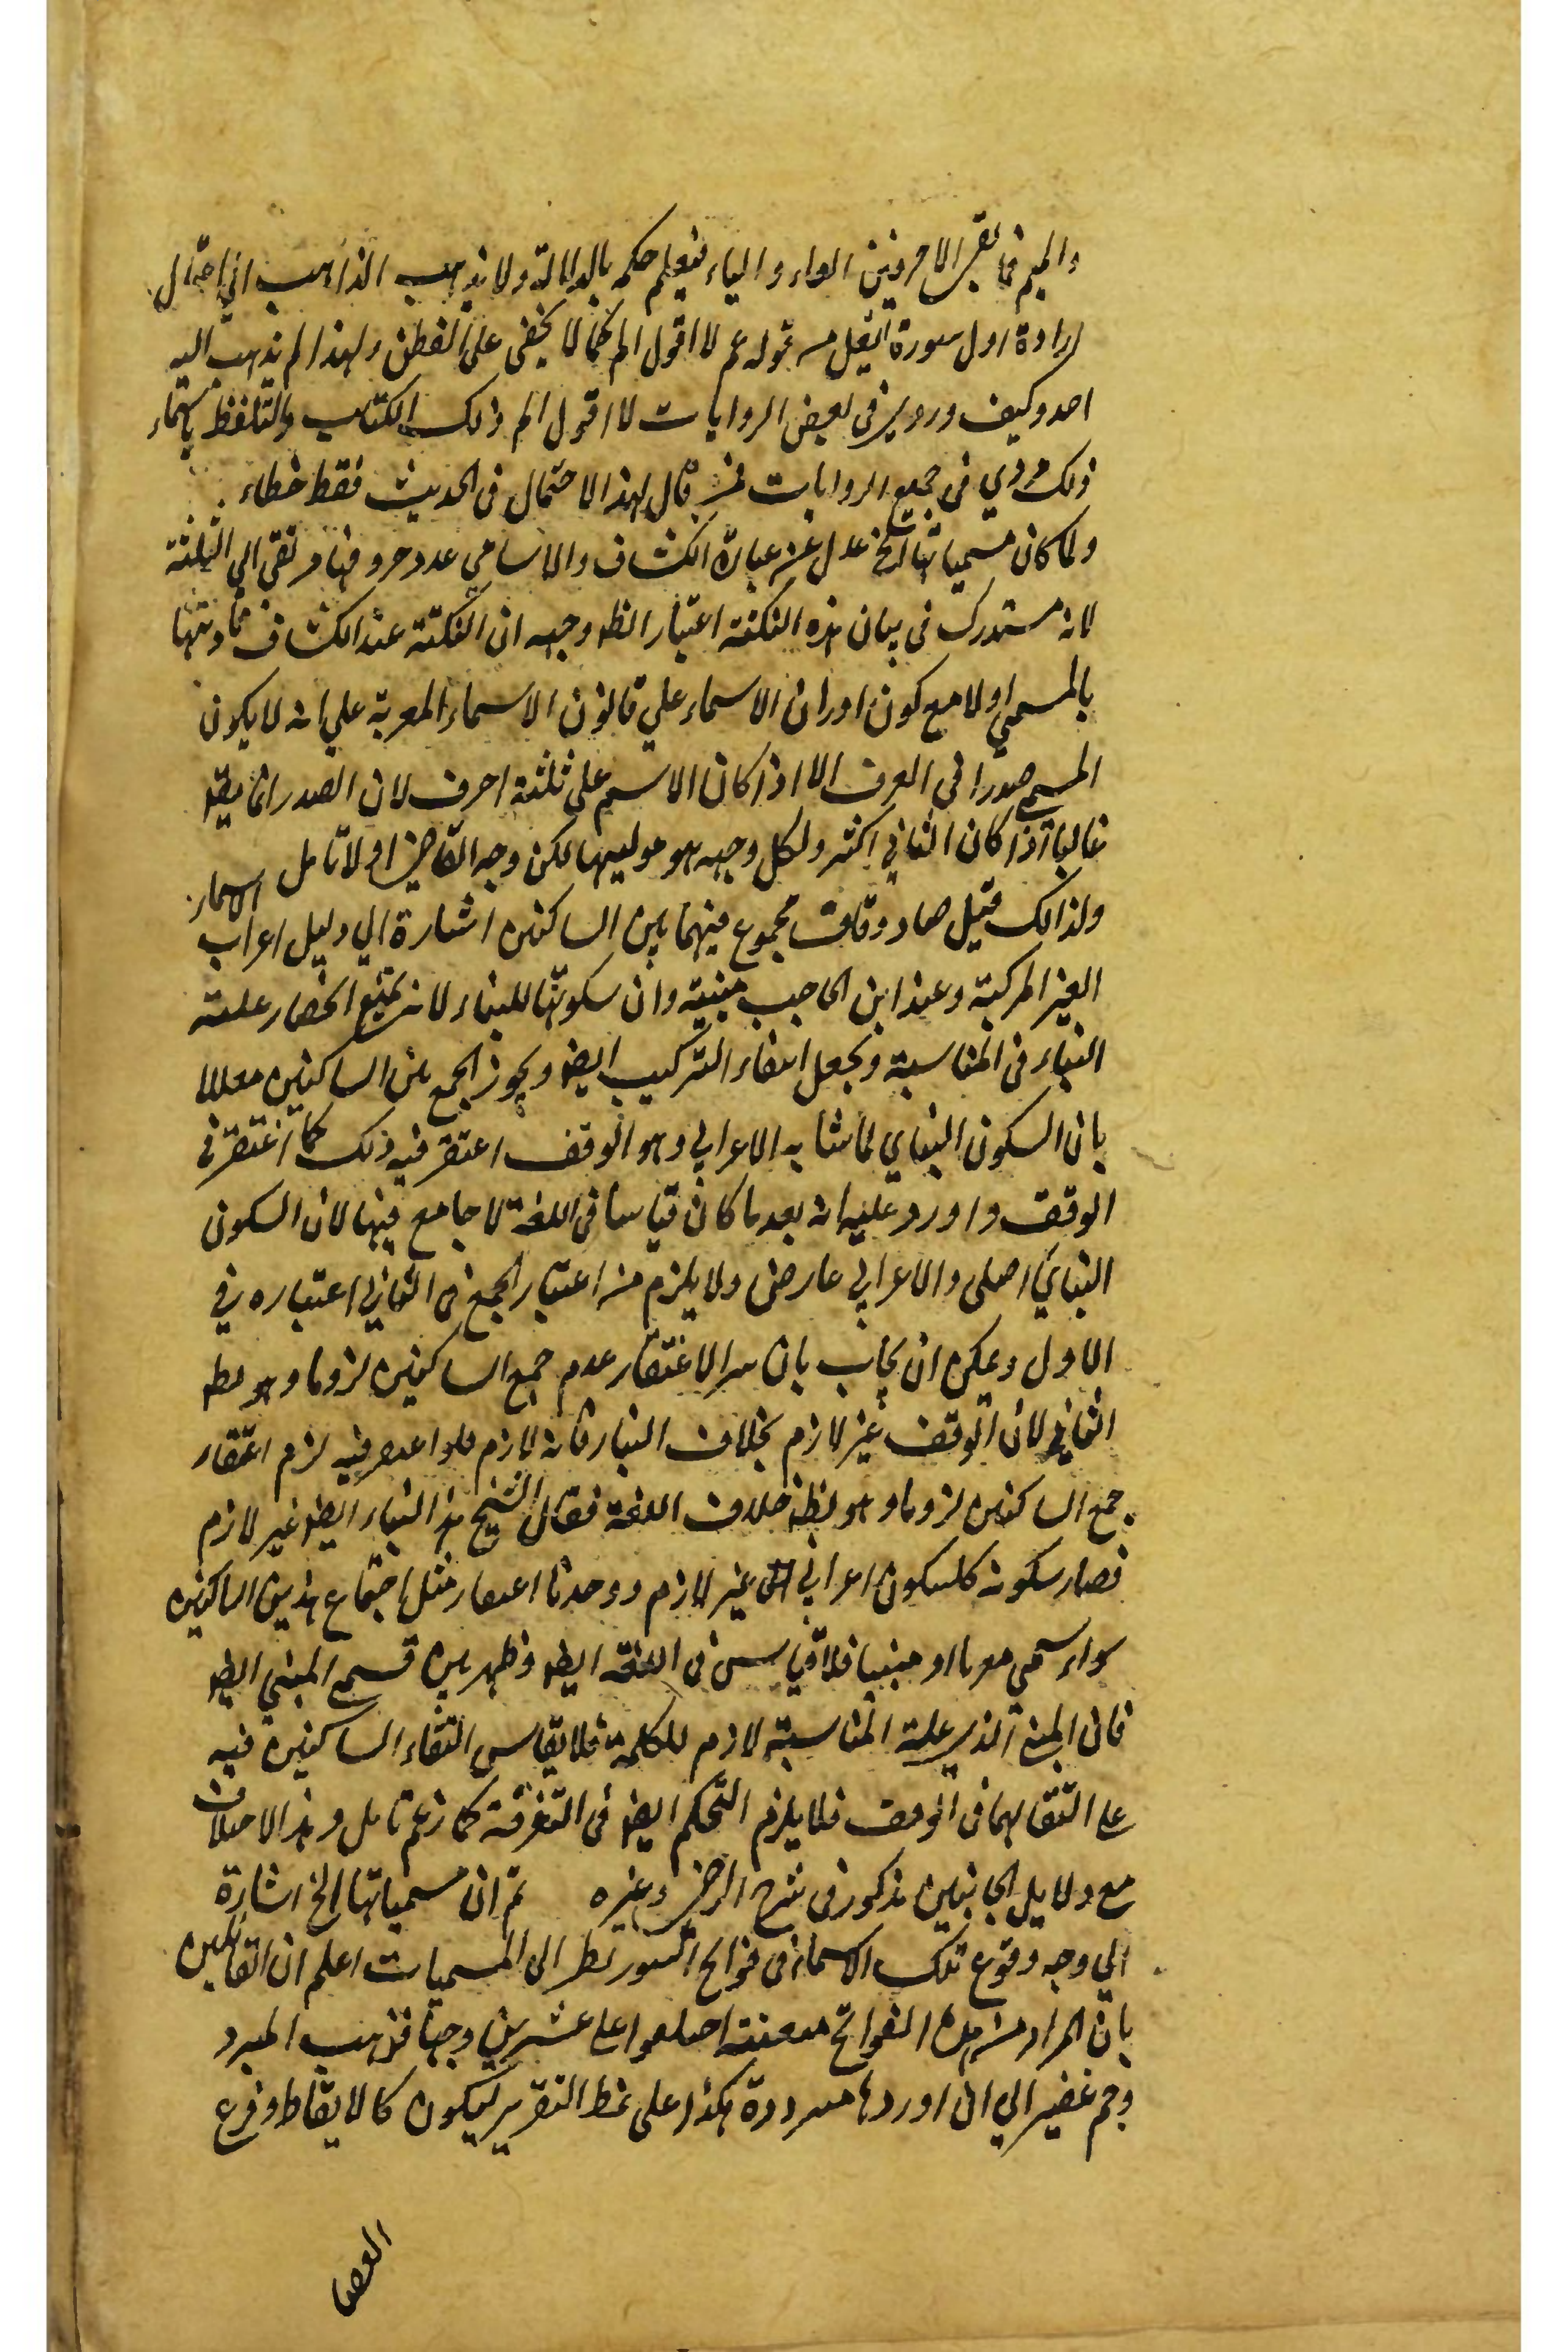 والميم فما بقى الا حرفين الواو والياء فيعلم حكمه بالدلالة ولا يذهب الذاهب الى احتمال
ارادة اول سورة الفيل من قوله عم لا اقول الم كما لا يخفى على الفطن ولهذا لم يذهب اليه
احد وكيف ورد في بعض الروايات لا اقول الم ذلك الكتاب والتلفظ باسماء
ذلك مروي في جميع الروايات فمن قال بهذا الاحتمال في الحديث فقط خطاء
ولما كان مسمياتها الخ عدل عن عبارة الكشاف والاسامي عدد حروفها مرتقى الى الثلثة
لانه مستدرك في بيان هذه النكتة اعتبار الظ وجهه ان النكتة عند الكشاف تاديتها
بالمسمى اولا مع كون اوزان الاسماء على قانون الاسماء المعربة على انه لا يكون
المسمى صدرا في العرف الا اذا كان الاسم على ثلثة احرف لان الصدر انما يط
غالبا اذا كان الثاني اكثر ولكل وجهه هو موليها لكن وجه القاضي اولا تامل
ولذالك قيل صاد وقاف مجموع فيهما بين الساكنين اشارة الى دليل اعراب الاسماء
الغير المركبة وعند ابن الحاجب مبنية وان سكونها للبناء لانه يمتنع انحصار علة
البناء في المناسبة ويجعل انتفاء التركيب ايضو ويجوز الجمع بين الساكنين معللا
بان السكون البناي لما شابه الاعرابي وهو الوقف اغتفر فيه ذلك كما اغتفر في
الوقف واورد عليه انه بعد ما كان قياسا في اللغة لا جامع فيها لان السكون
البناي اصلى والاعرابي عارضى ولا يلزم من اعتبار الجمع في الثاني اعتباره في
الاول ويمكن ان يجاب بان سر الاغتفار عدم جمع الساكنين لزوما وهو
الثاني لان الوقف غير لازم بخلاف البناء فانه لازم فلو اغتفر فيه لزم اغتفار
جمع الساكنين لزوما وهو خلاف اللغة فقال الشيخ هذا البناء ايضو غير لازم
فصار سكونه كالسكون اعرابي غير لازم ووجدنا اعتبار مثل اجتماع هذين الساكنين
سواء سمي معربا او مبنيا فلا قياس في اللغة ايضو وظهر بين قسمي المبني ايضو
فان المبنى الذي علية المناسبة لازم للكلمة فلا يقاس التقاء الساكنين فيه
على التقائهما في الوقف فلا يلزم التحكم ايضو في التفرقة كما زعم تامل وهذا الاختلاف
مع دلايل الجانبين مذكور في شرح الرضى وغيره ثم ان مسمياتها الخ اشارة
الى وجه وقوع تلك الاسماء في فواتح السور نظر الى المسميات اعلم ان القائلين
بان المراد من هذه الفواتح معينة اختلفوا على عشرين وجها فذهب المبرد
وجم غفير الى ان اوردها مسرودة هكذا على نمط التقرير ليكون كالايقاظ وقرع
العصا